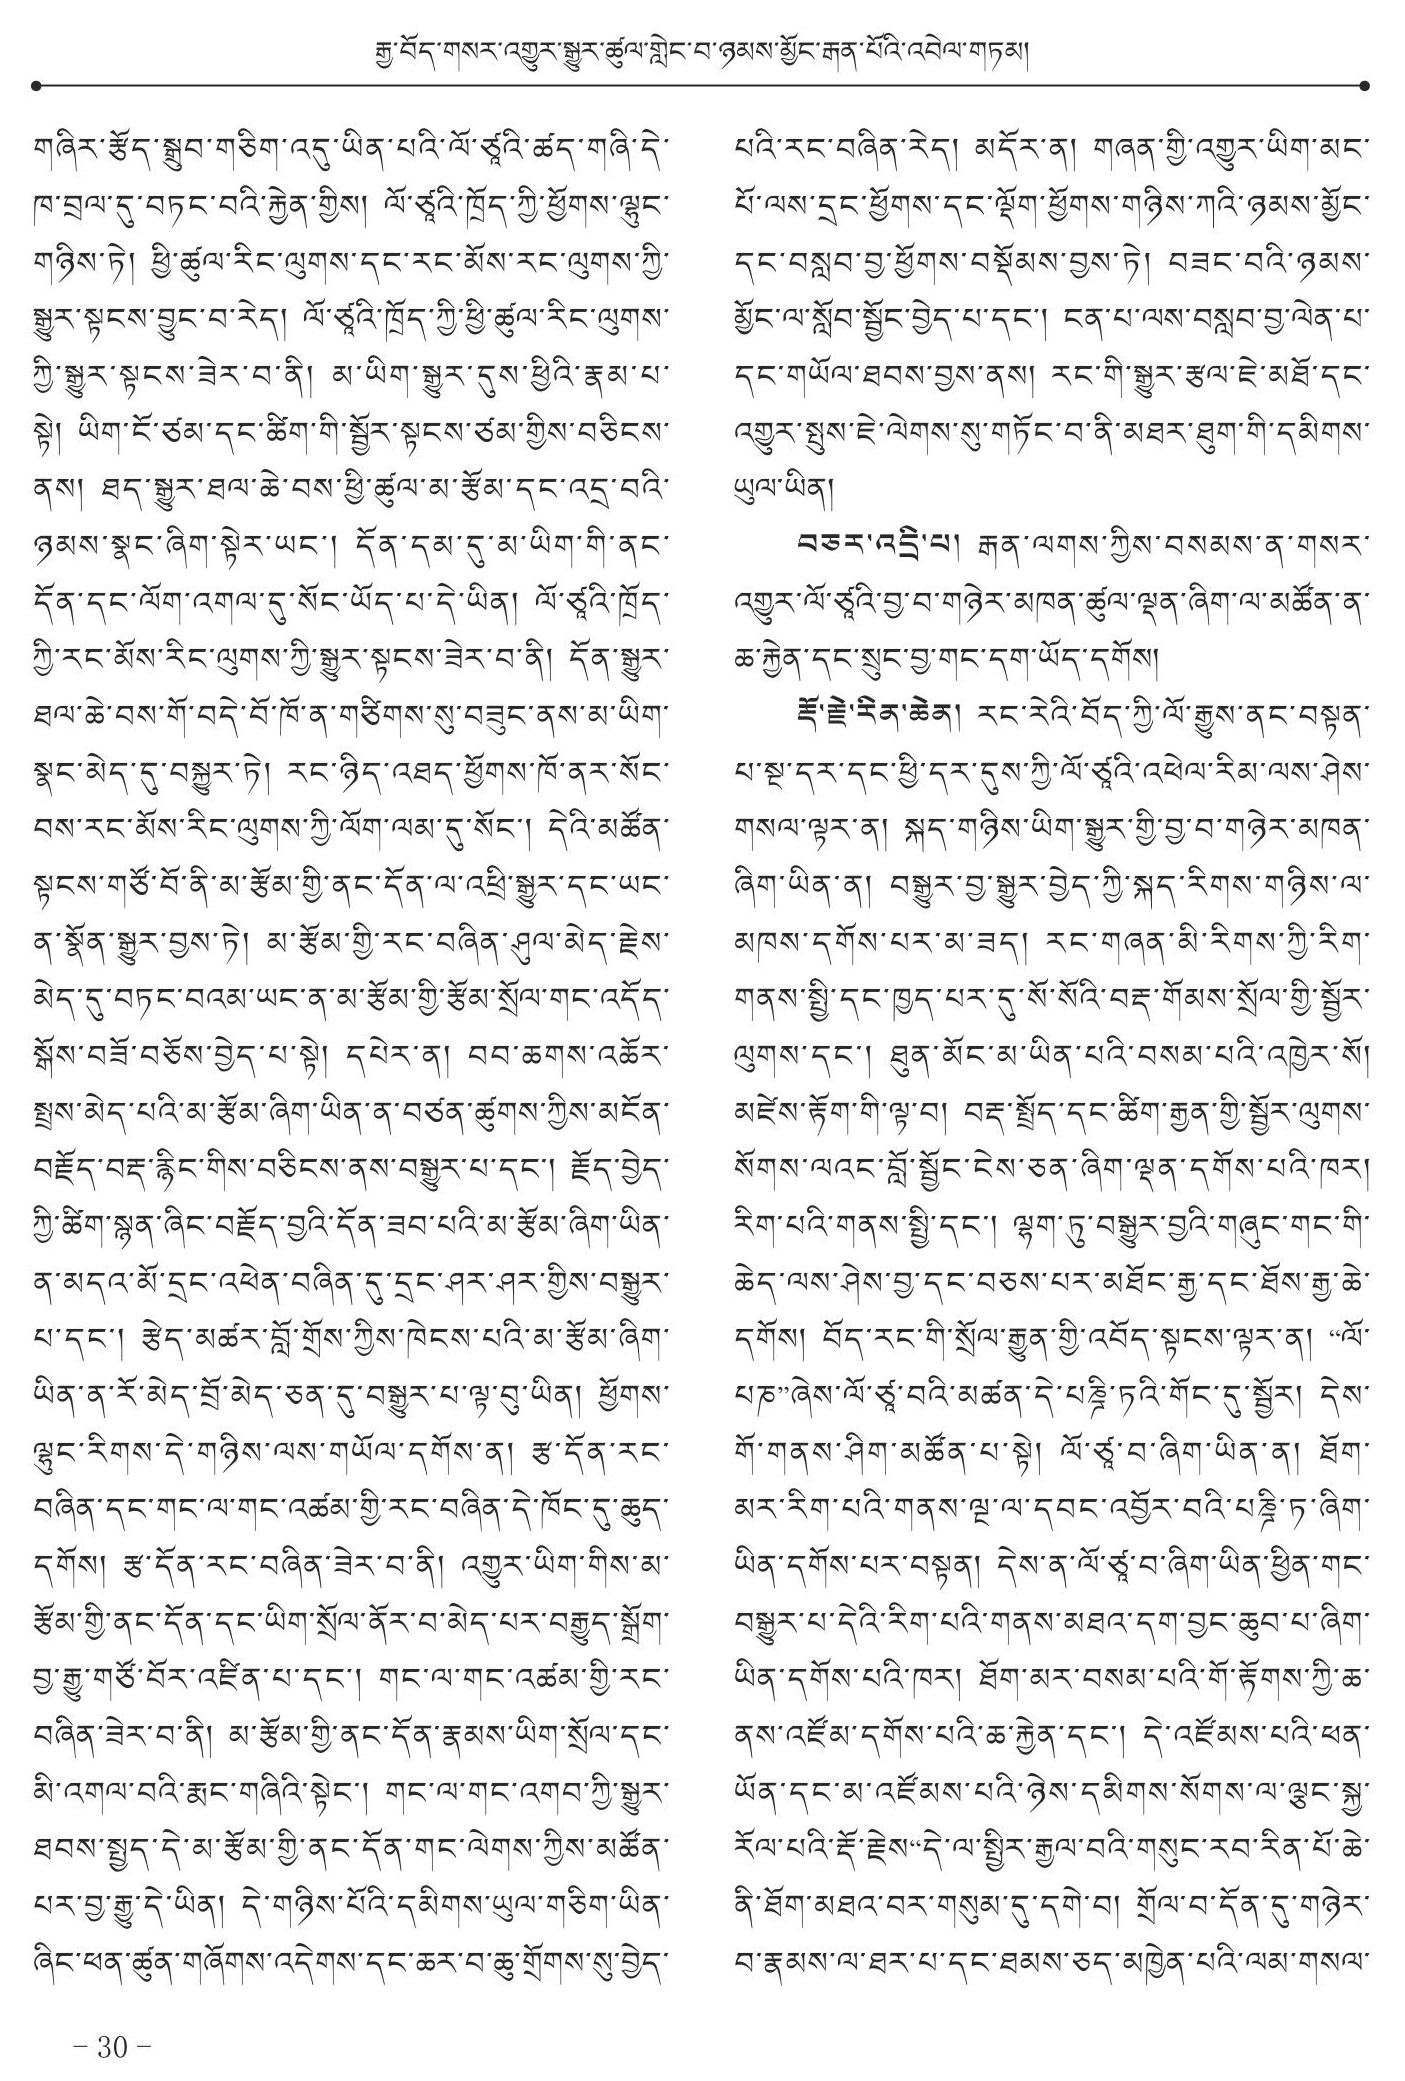 རྒྱ་བོད་གསར་འགྱུར་སྒྱུར་ཚུལ་གླེང་བ་ཉམས་མྱོང་རྒན་པོའི་འབེལ་གཏམ།
གཞིར་རྩོད་སྒྲུབ་གཅིག་འདུ་ཡིན་པའི་ལོ་ཙཱའི་ཚད་གཞི་དེ་
ཁ་བྲལ་དུ་བཏང་བའི་རྐྱེན་གྱིས། ལོ་ཙཱའི་ཁྲོད་ཀྱི་ཕྱོགས་ལྷུང་
གཉིས་ཏེ། ཕྱི་ཚུལ་རིང་ལུགས་དང་རང་མོས་རང་ལུགས་ཀྱི་
སྒྱུར་སྟངས་བྱུང་བ་རེད། ལོ་ཙཱའི་ཁྲོད་ཀྱི་ཕྱི་ཚུལ་རིང་ལུགས་
ཀྱི་སྒྱུར་སྟངས་ཟེར་བ་ནི། མ་ཡིག་སྒྱུར་དུས་ཕྱིའི་རྣམ་པ་
སྟེ། ཡིག་ངོ་ཙམ་དང་ཚིག་གི་སྦྱོར་སྟངས་ཙམ་གྱིས་བཅིངས་
ནས། ཐད་སྒྱུར་ཐལ་ཆེ་བས་ཕྱི་ཚུལ་མ་རྩོམ་དང་འདྲ་བའི་
ཉམས་སྣང་ཞིག་སྟེར་ཡང་། དོན་དམ་དུ་མ་ཡིག་གི་ནང་
དོན་དང་ལོག་འགལ་དུ་སོང་ཡོད་པ་དེ་ཡིན། ལོ་ཙཱའི་ཁྲོད་
ཀྱི་རང་མོས་རིང་ལུགས་ཀྱི་སྒྱུར་སྟངས་ཟེར་བ་ནི། དོན་སྒྱུར་
ཐལ་ཆེ་བས་གོ་བདེ་བོ་ཁོ་ན་གཙིགས་སུ་བཟུང་ནས་མ་ཡིག་
སྣང་མེད་དུ་བསྐྱུར་ཏེ། རང་ཉིད་འཐད་ཕྱོགས་ཁོ་ནར་སོང་
བས་རང་མོས་རིང་ལུགས་ཀྱི་ལོག་ལམ་དུ་སོང་། དེའི་མཚོན་
སྟངས་གཙོ་བོ་ནི་མ་རྩོམ་གྱི་ནང་དོན་ལ་འཕྲི་སྒྱུར་དང་ཡང་
ན་སྣོན་སྒྱུར་བྱས་ཏེ། མ་རྩོམ་གྱི་རང་བཞིན་ཤུལ་མེད་རྗེས་
མེད་དུ་བཏང་བའམ་ཡང་ན་མ་རྩོམ་གྱི་རྩོམ་སྲོལ་གང་འདོད་
སྒོས་བཟོ་བཅོས་བྱེད་པ་སྟེ། དཔེར་ན། བབ་ཆགས་འཆོར་
སྤྲས་མེད་པའི་མ་རྩོམ་ཞིག་ཡིན་ན་བཙན་ཚུགས་ཀྱིས་མངོན་
བརྗོད་བརྡ་རྙིང་གིས་བཅིངས་ནས་བསྒྱུར་པ་དང་། རྗོད་བྱེད་
ཀྱི་ཚིག་སྙན་ཞིང་བརྗོད་བྱའི་དོན་ཟབ་པའི་མ་རྩོམ་ཞིག་ཡིན་
ན་མདའ་མོ་དྲང་འཕེན་བཞིན་དུ་དྲང་ཤར་ཤར་གྱིས་བསྒྱུར་
པ་དང་། རྩེད་མཚར་བློ་གྲོས་ཀྱིས་ཁེངས་པའི་མ་རྩོམ་ཞིག་
ཡིན་ན་རོ་མེད་བྲོ་མེད་ཅན་དུ་བསྒྱུར་པ་ལྟ་བུ་ཡིན། ཕྱོགས་
ལྷུང་རིགས་དེ་གཉིས་ལས་གཡོལ་དགོས་ན། རྩ་དོན་རང་
བཞིན་དང་གང་ལ་གང་འཚམ་གྱི་རང་བཞིན་དེ་ཁོང་དུ་ཆུད་
དགོས། རྩ་དོན་རང་བཞིན་ཟེར་བ་ནི། འགྱུར་ཡིག་གིས་མ་
རྩོམ་གྱི་ནང་དོན་དང་ཡིག་སྲོལ་ནོར་བ་མེད་པར་བརྒྱུད་སྒྲོག་
བྱ་རྒྱུ་གཙོ་བོར་འཛིན་པ་དང་། གང་ལ་གང་འཚམ་གྱི་རང་
བཞིན་ཟེར་བ་ནི། མ་རྩོམ་གྱི་ནང་དོན་རྣམས་ཡིག་སྲོལ་དང་
མི་འགལ་བའི་རྨང་གཞིའི་སྟེང་། གང་ལ་གང་འགབ་ཀྱི་སྒྱུར་
ཐབས་སྤྱད་དེ་མ་རྩོམ་གྱི་ནང་དོན་གང་ལེགས་ཀྱིས་མཚོན་
པར་བྱ་རྒྱུ་དེ་ཡིན། དེ་གཉིས་པོའི་དམིགས་ཡུལ་གཅིག་ཡིན་
ཞིང་ཕན་ཚུན་གཞོགས་འདེགས་དང་ཆར་བ་ཆུ་གྲོགས་སུ་བྱེད་
པའི་རང་བཞིན་རེད། མདོར་ན། གཞན་གྱི་འགྱུར་ཡིག་མང་
པོ་ལས་དྲང་ཕྱོགས་དང་ལྡོག་ཕྱོགས་གཉིས་ཀའི་ཉམས་མྱོང་
དང་བསླབ་བྱ་ཕྱོགས་བསྡོམས་བྱས་ཏེ། བཟང་བའི་ཉམས་
མྱོང་ལ་སློབ་སྦྱོང་བྱེད་པ་དང་། ངན་པ་ལས་བསླབ་བྱ་ལེན་པ་
དང་གཡོལ་ཐབས་བྱས་ནས། རང་གི་སྒྱུར་རྩལ་ཇེ་མཐོ་དང་
འགྱུར་སྤུས་ཇེ་ལེགས་སུ་གཏོང་བ་ནི་མཐར་ཐུག་གི་དམིགས་
ཡུལ་ཡིན།
བཅར་འདྲི་པ། རྒན་ལགས་ཀྱིས་བསམས་ན་གསར་
འགྱུར་ལོ་ཙཱའི་བྱ་བ་གཉེར་མཁན་ཚུལ་ལྡན་ཞིག་ལ་མཚོན་ན་
ཆ་རྐྱེན་དང་སྲུང་བྱ་གང་དག་ཡོད་དགོས།
རྡོ་རྗེ་རིན་ཆེན། རང་རེའི་བོད་ཀྱི་ལོ་རྒྱུས་ནང་བསྟན་
པ་སྔ་དར་དང་ཕྱི་དར་དུས་ཀྱི་ལོ་ཙཱའི་འཕེལ་རིམ་ལས་ཤེས་
གསལ་ལྟར་ན། སྐད་གཉིས་ཡིག་སྒྱུར་གྱི་བྱ་བ་གཉེར་མཁན་
ཞིག་ཡིན་ན། བསྒྱུར་བྱ་སྒྱུར་བྱེད་ཀྱི་སྐད་རིགས་གཉིས་ལ་
མཁས་དགོས་པར་མ་ཟད། རང་གཞན་མི་རིགས་ཀྱི་རིག་
གནས་སྤྱི་དང་ཁྱད་པར་དུ་སོ་སོའི་བརྡ་གོམས་སྲོལ་གྱི་སྦྱོར་
ལུགས་དང་། ཐུན་མོང་མ་ཡིན་པའི་བསམ་པའི་འཁྱེར་སོ།
མཛེས་རྟོག་གི་ལྟ་བ། བརྡ་སྤྲོད་དང་ཚིག་རྒྱན་གྱི་སྦྱོར་ལུགས་
སོགས་ལའང་བློ་སྦྱོང་ངེས་ཅན་ཞིག་ལྡན་དགོས་པའི་ཁར།
རིག་པའི་གནས་སྤྱི་དང་། ལྷག་ཏུ་བསྒྱུར་བྱའི་གཞུང་གང་གི་
ཆེད་ལས་ཤེས་བྱ་དང་བཅས་པར་མཐོང་རྒྱ་དང་ཐོས་རྒྱ་ཆེ་
དགོས། བོད་རང་གི་སྲོལ་རྒྱུན་གྱི་འབོད་སྟངས་ལྟར་ན། “ལོ་
པཎ”ཞེས་ལོ་ཙཱ་བའི་མཚན་དེ་པཎྜི་ཏའི་གོང་དུ་སྦྱོར། དེས་
གོ་གནས་ཤིག་མཚོན་པ་སྟེ། ལོ་ཙཱ་བ་ཞིག་ཡིན་ན། ཐོག་
མར་རིག་པའི་གནས་ལྔ་ལ་དབང་འབྱོར་བའི་པཎྜི་ཏ་ཞིག་
ཡིན་དགོས་པར་བསྟན། དེས་ན་ལོ་ཙཱ་བ་ཞིག་ཡིན་ཕྱིན་གང་
བསྒྱུར་པ་དེའི་རིག་པའི་གནས་མཐའ་དག་བྱང་ཆུབ་པ་ཞིག་
ཡིན་དགོས་པའི་ཁར། ཐོག་མར་བསམ་པའི་གོ་རྟོགས་ཀྱི་ཆ་
ནས་འཛོམ་དགོས་པའི་ཆ་རྐྱེན་དང་། དེ་འཛོམས་པའི་ཕན་
ཡོན་དང་མ་འཛོམས་པའི་ཉེས་དམིགས་སོགས་ལ་ལྕང་སྐྱ་
རོལ་པའི་རྡོ་རྗེས“དེ་ལ་སྤྱིར་རྒྱལ་བའི་གསུང་རབ་རིན་པོ་ཆེ་
ནི་ཐོག་མཐའ་བར་གསུམ་དུ་དགེ་བ། གྲོལ་བ་དོན་དུ་གཉེར་
བ་རྣམས་ལ་ཐར་པ་དང་ཐམས་ཅད་མཁྱེན་པའི་ལམ་གསལ་
– 30 –